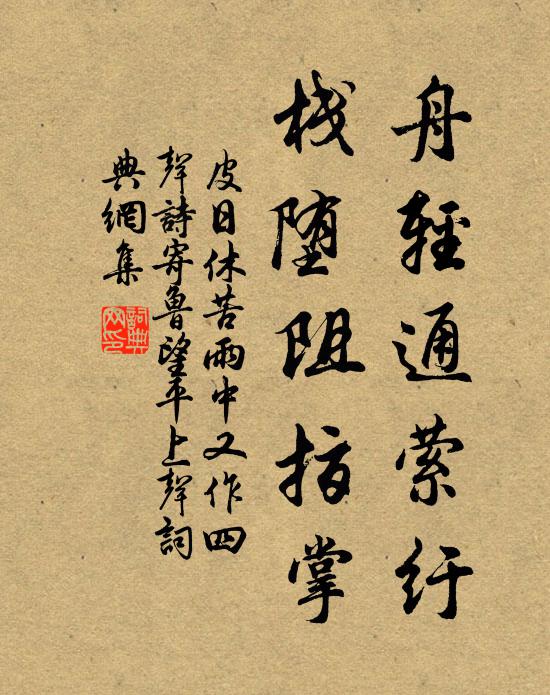 舟輕通縈紆
棧墮阻指掌
皮日休苦雨中又作四
聲詩寄魯望平上聲詞
典網集
詞典網印